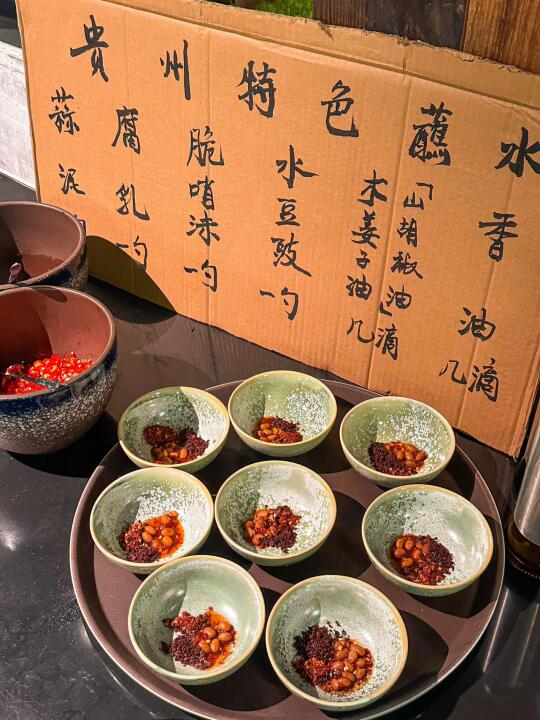 貴州特色蘸水
蒜泥
腐乳一勺
脆哨沫一勺
水豆豉一勺
木姜子油「山胡椒油」几滴
香油几滴